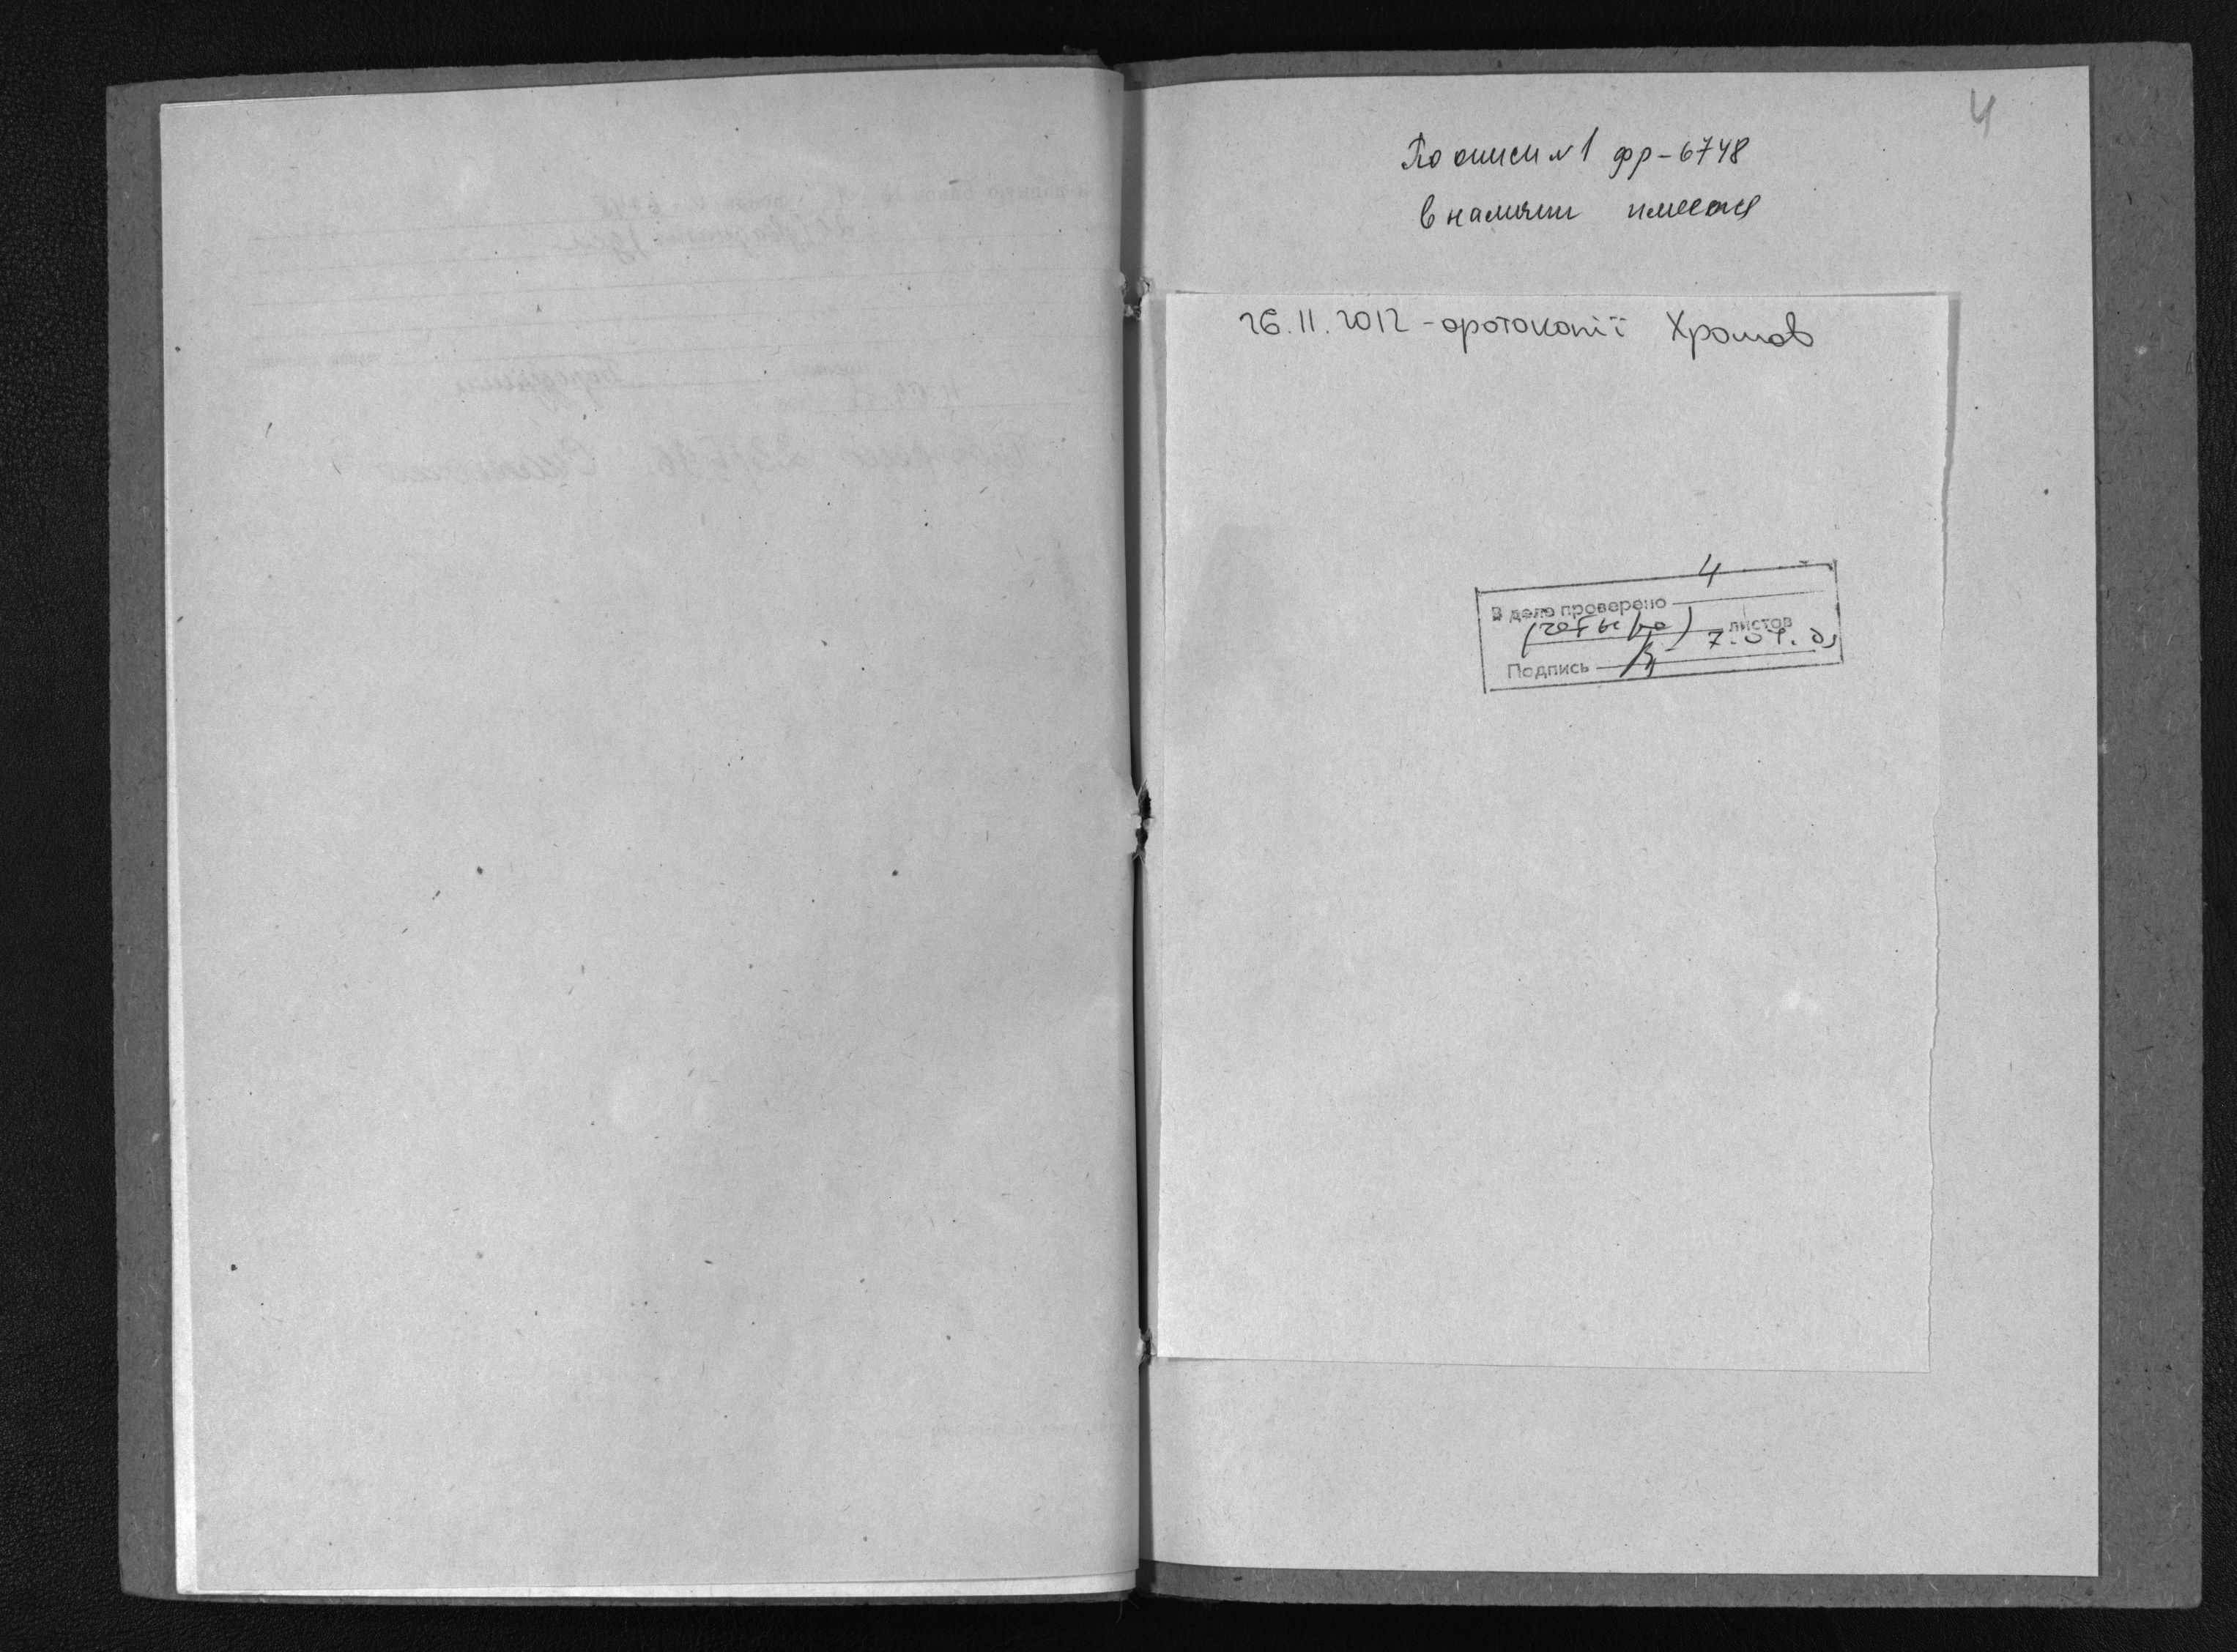 4
По описи №1 фр-6748
в наличии имеется
26.11.2012 - фотокопії Хромов
В деле проверено 4
(четыре) листов
7.04.
Подпись